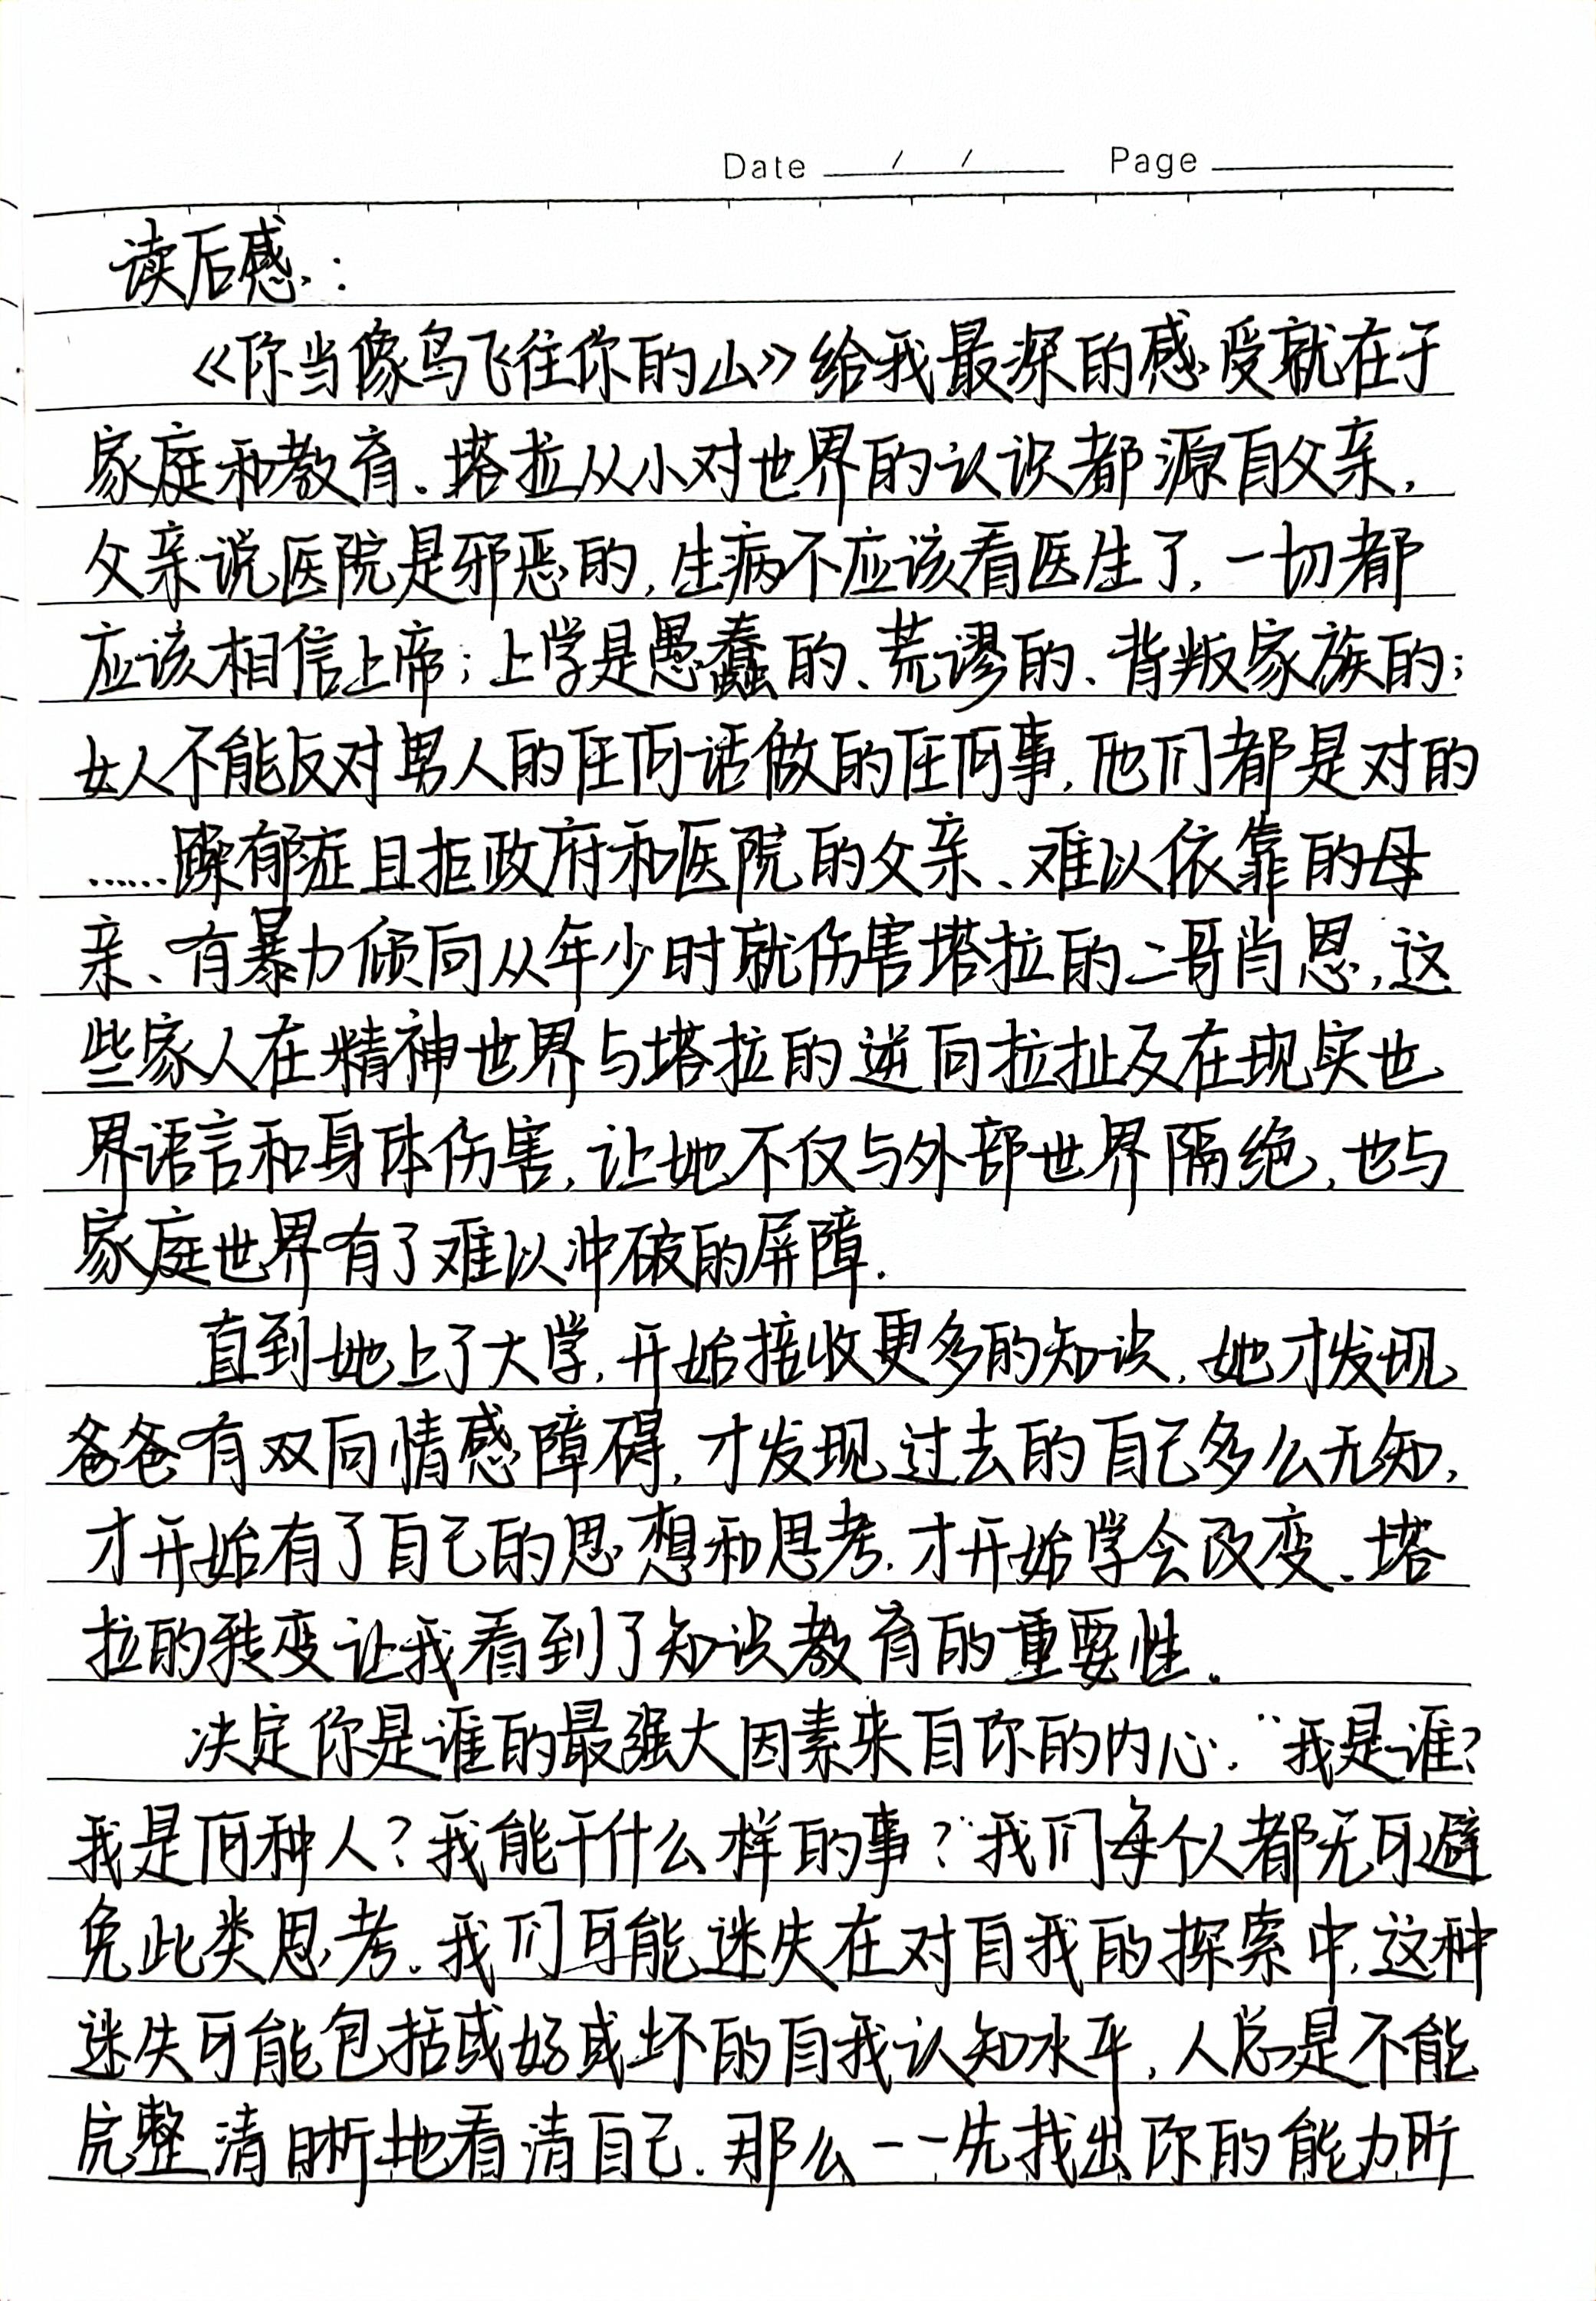 Date / / Page
读后感:
《你当像鸟飞往你的山》给我最深的感受就在于
家庭和教育.塔拉从小对世界的认识都源自父亲,
父亲说医院是邪恶的,生病不应该看医生了,一切都
应该相信上帝;上学是愚蠢的、荒谬的、背叛家族的;
女人不能反对男人的任何话做的任何事,他们都是对的
……躁郁症且拒政府和医院的父亲、难以依靠的母
亲、有暴力倾向从年少时就伤害塔拉的二哥肖恩,这
些家人在精神世界与塔拉的逆向拉扯及在现实世
界语言和身体伤害,让她不仅与外部世界隔绝,也与
家庭世界有了难以冲破的屏障.
直到她上了大学,开始接收更多的知识,她才发现
爸爸有双向情感障碍,才发现过去的自己多么无知,
才开始有了自己的思想和思考.才开始学会改变、塔
拉的转变让我看到了知识教育的重要性。
决定你是谁的最强大因素来自你的内心."我是谁?
我是何种人?我能干什么样的事?"我们每个人都无可避
免此类思考.我们可能迷失在对自我的探索中,这种
迷失可能包括或好或坏的自我认知水平,人总是不能
完整清晰地看清自己.那么——先找出你的能力所